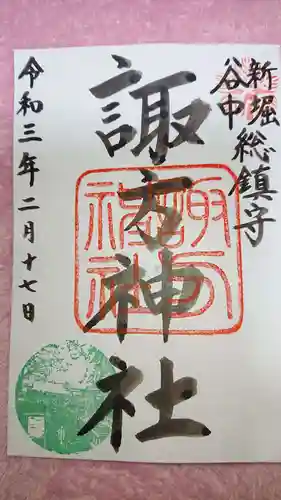 新堀
谷中 総鎮守
諏方神社
諏方
神社
令和三年二月十七日